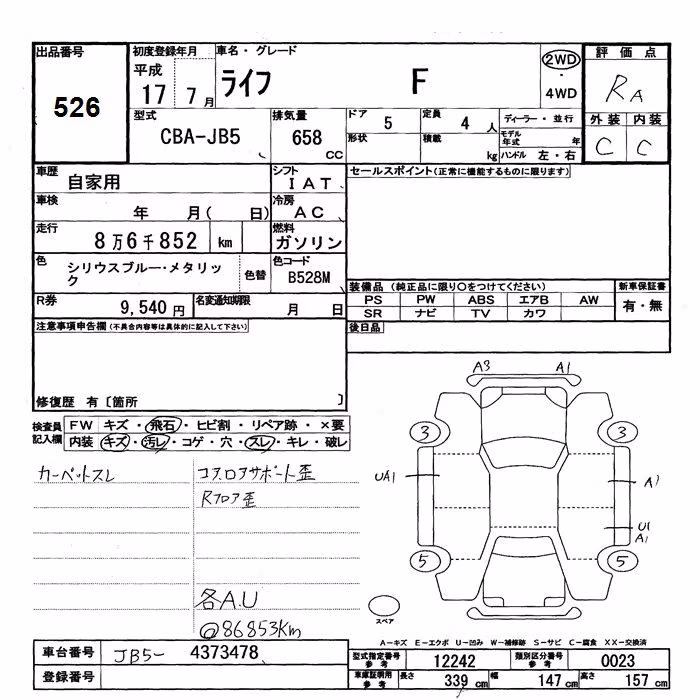 出品番号
526
初度登録年月
平成
17 7月
車名・グレード
ライフ F
2WD
・
4WD
評価点
RA
外装 内装
C C
型式
CBA-JB5
排気量
658
cc
ドア
5
定員
4 人
形状
積載
kg
ディーラー・並行
モデル年式 年
ハンドル 左・右
車歴
自家用
シフト
IAT
車検
年 月( 日)
冷房
AC
走行
8万6千852 km
燃料
ガソリン
色
シリウスブルー・メタリック
色替
色コード
B528M
R券
9,540円
名変通知期限
月 日
セールスポイント(正常に機能するものに限ります)
装備品 (純正品に限り○をつけてください)
PS PW ABS エアB AW
SR ナビ TV カワ
新車保証書
有・無
後日品
注意事項申告欄(不具合内容等は具体的に記入して下さい)
修復歴 有〔箇所 〕
検査員記入欄
FW キズ・飛石・ヒビ割・リペア跡・×要
内装 キズ・汚レ・コゲ・穴・スレ・キレ・破レ
カーペットスレ
コアロアサポート歪
Rフロア歪
各A.U
@86853Km
A3 A1
3 3
UA1
A1
U1
A1
5 5
スペア
A-キズ E-エクボ U-凹み W-補修跡 S-サビ C-腐食 XX-交換済
車台番号
JB5- 4373478
登録番号
型式指定番号
参考
12242
類別区分番号
参考
0023
車庫証明用
参考
長さ
339 cm
幅
147 cm
高さ
157 cm